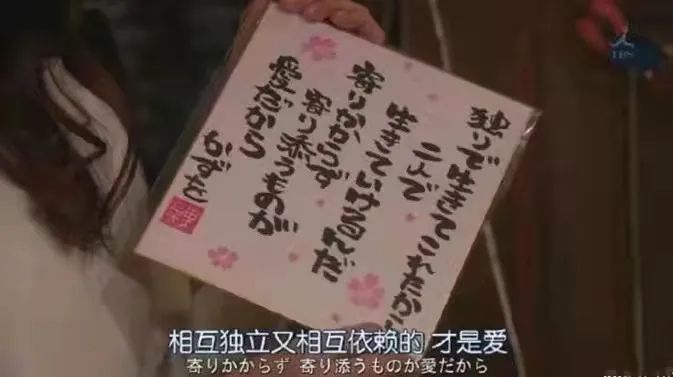 独りで生きてこれたから
二人で
生きていけるんだ
寄りかからず
寄り添うものが
愛だから
かずと
TBS
相互独立又相互依赖的 才是爱
寄りかからず 寄り添うものが愛だから